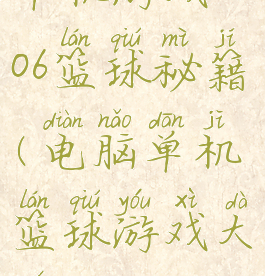 lán qiú mì jí
06篮球秘籍
diàn nǎo dān jī
(电脑单机
lán qiú yóu xì dà
篮球游戏大